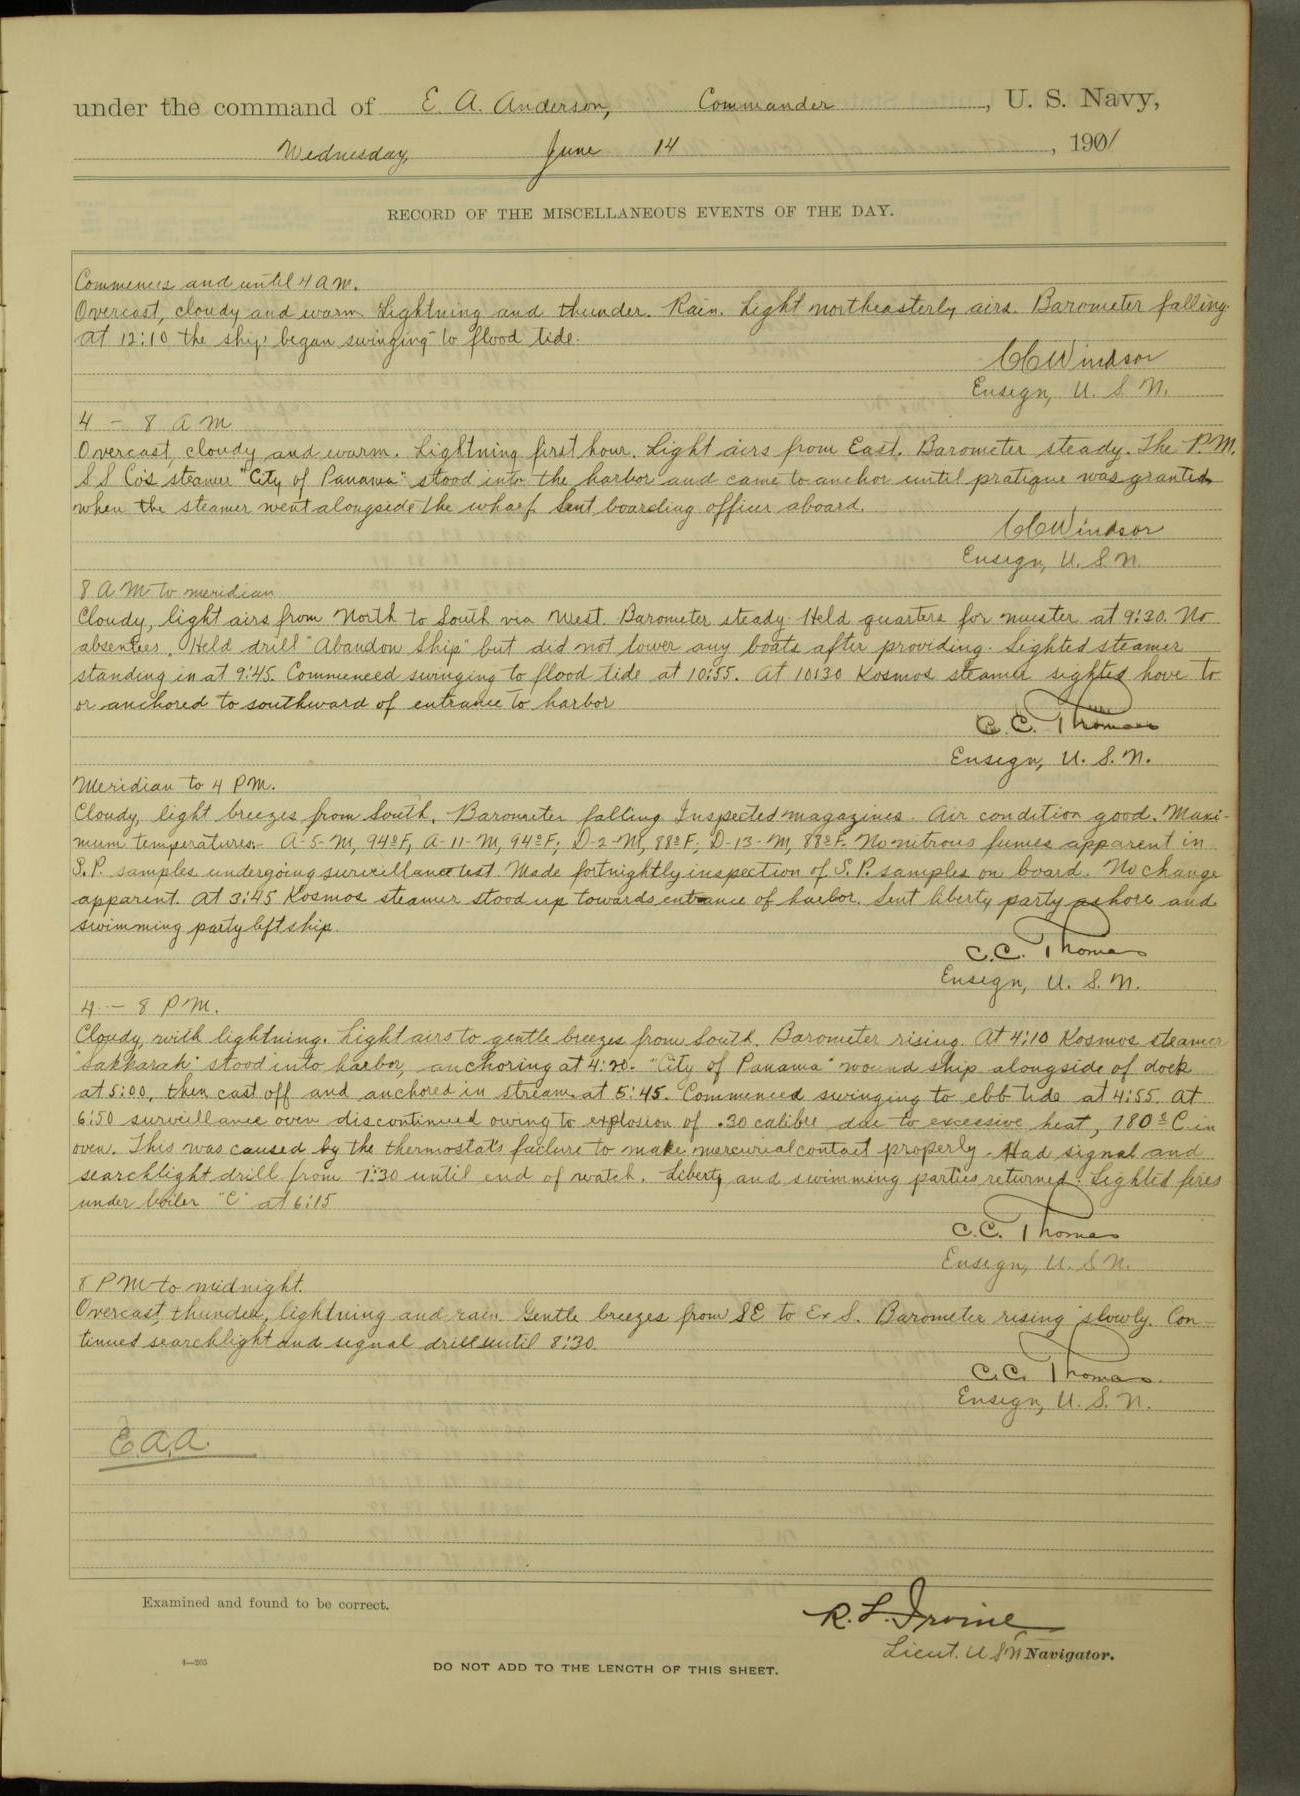 under the command of E. A. Anderson, Commander, U. S. Navy,
Wednesday, June 14, 1901
RECORD OF THE MISCELLANEOUS EVENTS OF THE DAY.
Commences and until 4 a m.
Overcast, cloudy and warm. Lightning and thunder. Rain. Light northeasterly airs. Barometer falling.
At 12:10 the ship began swinging to flood tide.
C C Windsor
Ensign, U. S. N.
4 - 8 a m
Overcast, cloudy and warm. Lightning first hour. Light airs from East. Barometer steady. The P. M.
S S Co's steamer "City of Panama" stood into the harbor and came to anchor until pratique was granted
when the steamer went alongside the wharf. Sent boarding officer aboard.
C C Windsor
Ensign, U. S. N.
8 A M to meridian
Cloudy, light airs from North to South via West. Barometer steady. Held quarters for muster at 9:30. No
absentees. Held drill "Abandon Ship" but did not lower any boats after providing. Sighted steamer
standing in at 9:45. Commenced swinging to flood tide at 10:55. At 10:30 Kosmos steamer sighted hove to
or anchored to southward of entrance to harbor
C. C. Thomas
Ensign, U. S. N.
Meridian to 4 P M.
Cloudy, light breezes from South. Barometer falling. Inspected magazines. Air condition good. Maxi-
mum temperatures:- A-5-M, 94°F, A-11-M, 94°F; D-2-M, 88°F; D-13-M, 88°F. No nitrous fumes apparent in
S. P. samples undergoing surveillance test. Made fortnightly inspection of S. P. samples on board. No change
apparent. At 3:45 Kosmos steamer stood up towards entrance of harbor. Sent liberty party ashore and
swimming party left ship.
C. C. Thomas
Ensign, U. S. N.
4 - 8 P M.
Cloudy, with lightning. Light airs to gentle breezes from South. Barometer rising. At 4:10 Kosmos steamer
"Sakkarah" stood into harbor, anchoring at 4:20. "City of Panama" wound ship alongside of dock
at 5:00, then cast off and anchored in stream at 5:45. Commenced swinging to ebb tide at 4:55. At
6:50 surveillance oven discontinued owing to explosion of .30 calibre due to excessive heat, 180° C. in
oven. This was caused by the thermostat's failure to make mercurial contact properly. Had signal and
searchlight drill from 7:30 until end of watch. Liberty and swimming parties returned. Lighted fires
under boiler "C" at 6:15
C. C. Thomas
Ensign, U. S. N.
8 P M to midnight.
Overcast, thunder, lightning and rain. Gentle breezes from SE to E x S. Barometer rising slowly. Con-
tinued searchlight and signal drill until 8:30.
C. C. Thomas
Ensign, U. S. N.
E. A. A.
Examined and found to be correct.
R. L. Irvine
Lieut. U S N Navigator.
4—205
DO NOT ADD TO THE LENGTH OF THIS SHEET.